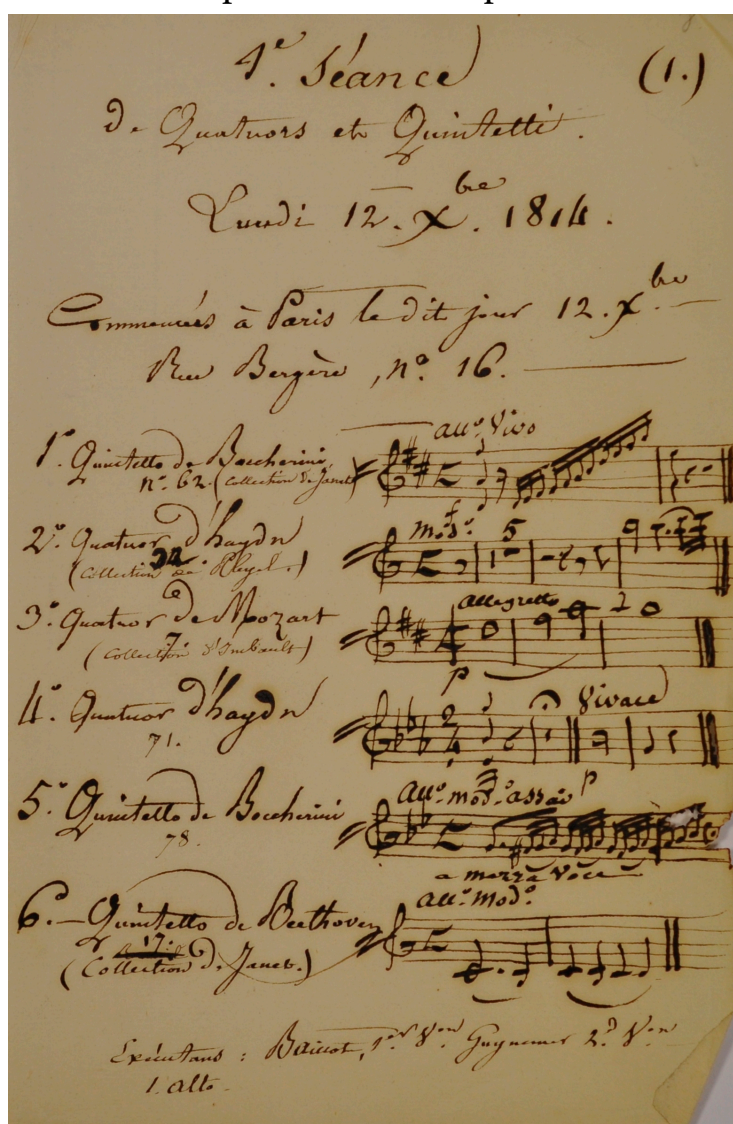 1e. Séance (1.)
de Quatuors et Quintetti.
Lundi 12. Xbre. 1814.
Commencées à Paris le dit jour 12. Xbre.
Rue Bergère, no. 16.
1o. Quintetto de Boccherini, allo. Vivo
no. 62. (Collection de Janet)
f
2o. Quatuor d'haydn modo. 5
32
(Collection de Pleyel.)
3o. Quatuor de Mozart allegretto 2
7
(Collection d'Imbault) p
4o. Quatuor d'haydn Vivace
71.
p
5o. Quintetto de Boccherini allo. modo. assai
78.
a mezza voce
6o. Quintetto de Beethoven allo. modo.
17.
(Collection de Janet.)
Exécutans : Baillot, 1er Von Guynemer 2d Von
1. alto.